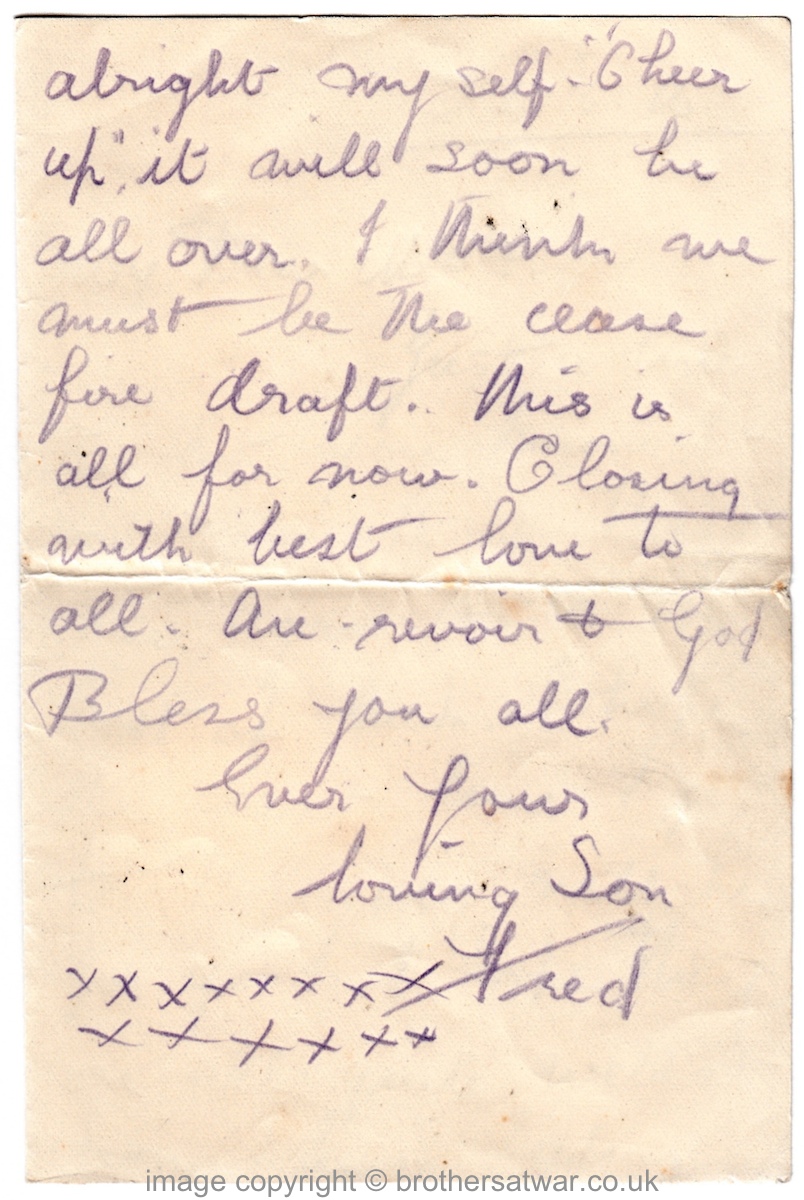 alright my self. "Cheer
up", it will soon be
all over. I think we
must be the cease
fire draft. This is
all for now. Closing
with best love to
all. Au-revoir & God
Bless you all.
Ever Your
loving Son
Fred
x x x x x x x x
x x x x x x
image copyright © brothersatwar.co.uk